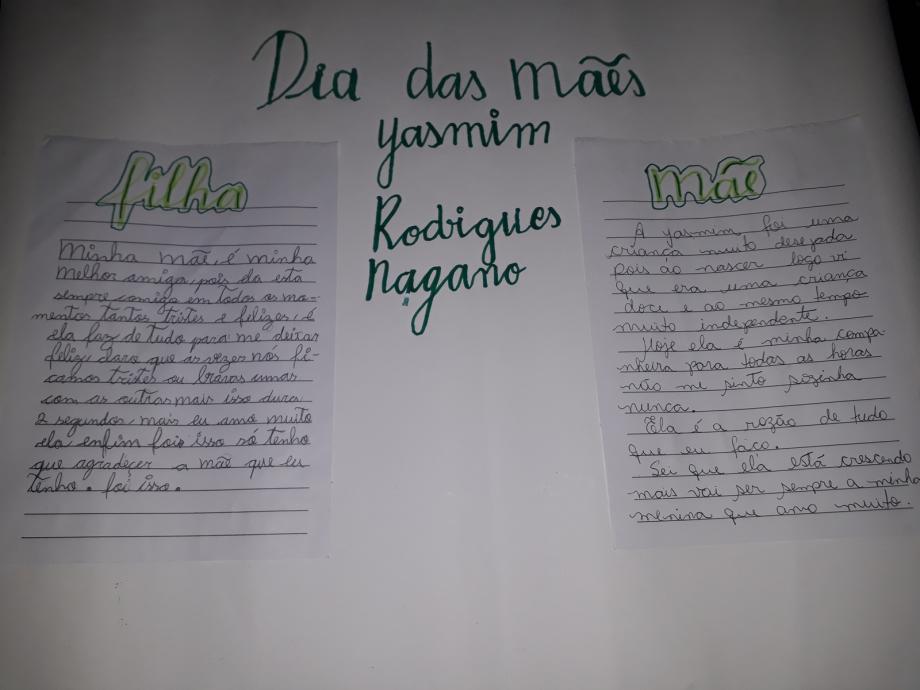 Dia das mães
yasmim
Rodigues
nagano
filha
Minha mãe, é minha
melhor amiga, pois da esta
sempre comigo em todos os mo-
mentos tantos tristes e felizes, é
ela faz de tudo para me deixar
feliz, claro que ás vezes nós fi-
camos tristes ou bravas umas
com as outras mais isso dura
2 segundos, mais eu amo muito
ela enfim fois isso só tenho
que agradeçer a mãe que eu
tenho. foi isso.
mãe
A yasmim foi uma
criança muito desejada
pois ao nascer logo vi
que era uma criança
doce e ao mesmo tempo
muito independente.
Hoje ela é minha compa-
nheira para todas as horas
não me sinto sozinha
nunca.
Ela é a razão de tudo
que eu faço.
Sei que ela está crescendo
mais vai ser sempre a minha
menina que amo muito.